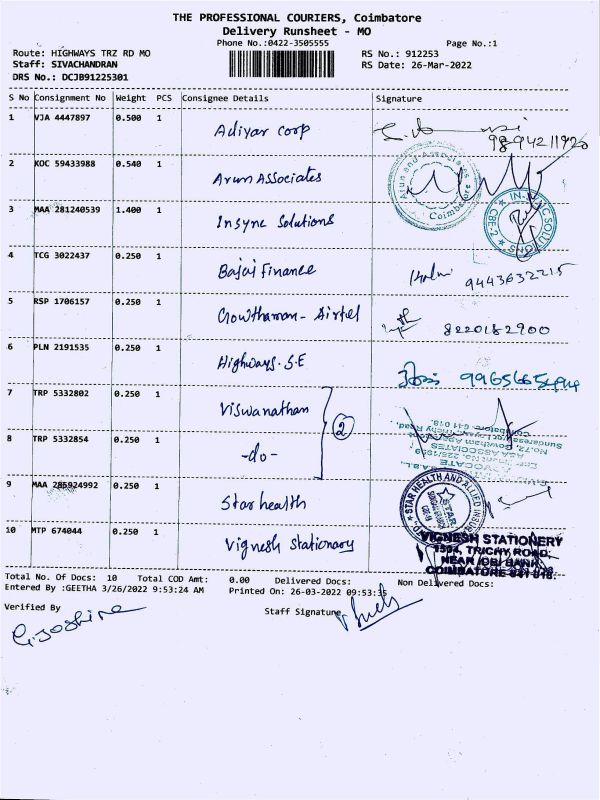 THE PROFESSIONAL COURIERS, Coimbatore
Delivery Runsheet - MO
Phone No.:0422-3505555
Page No.:1
Route: HIGHWAYS TRZ RD MO
RS No.: 912253
Staff: SIVACHANDRAN
RS Date: 26-Mar-2022
DRS No.: DCJB91225301
S No Consignment No Weight PCS Consignee Details Signature
1 VJA 4447897 0.500 1 Adiyar corp
9894211920
2 KOC 59433988 0.540 1 Arun Associates
Arun and Associates Coimbatore
3 MAA 281240539 1.400 1 Insync Solutions
IN-SYNC SOLUTIONS CBE-2
4 TCG 3022437 0.250 1 Bajaj Finance 9443632215
5 RSP 1706157 0.250 1 Gowthaman - Airtel 8220182900
6 PLN 2191535 0.250 1 Highways. S.E
7 TRP 5332802 0.250 1 Viswanathan
2
8 TRP 5332854 0.250 1 -do-
9 MAA 285924992 0.250 1 Star health
STAR HEALTH AND ALLIED
STAR
10 MTP 674044 0.250 1 Vignesh Stationary
VIGNESH STATIONERY
1504, TRICHY ROAD,
NEAR IDBI BANK
COIMBATORE 641 018.
Total No. Of Docs: 10 Total COD Amt: 0.00 Delivered Docs: Non Delivered Docs:
Entered By :GEETHA 3/26/2022 9:53:24 AM Printed On: 26-03-2022 09:53:35
Verified By Staff Signature
G. Joshina